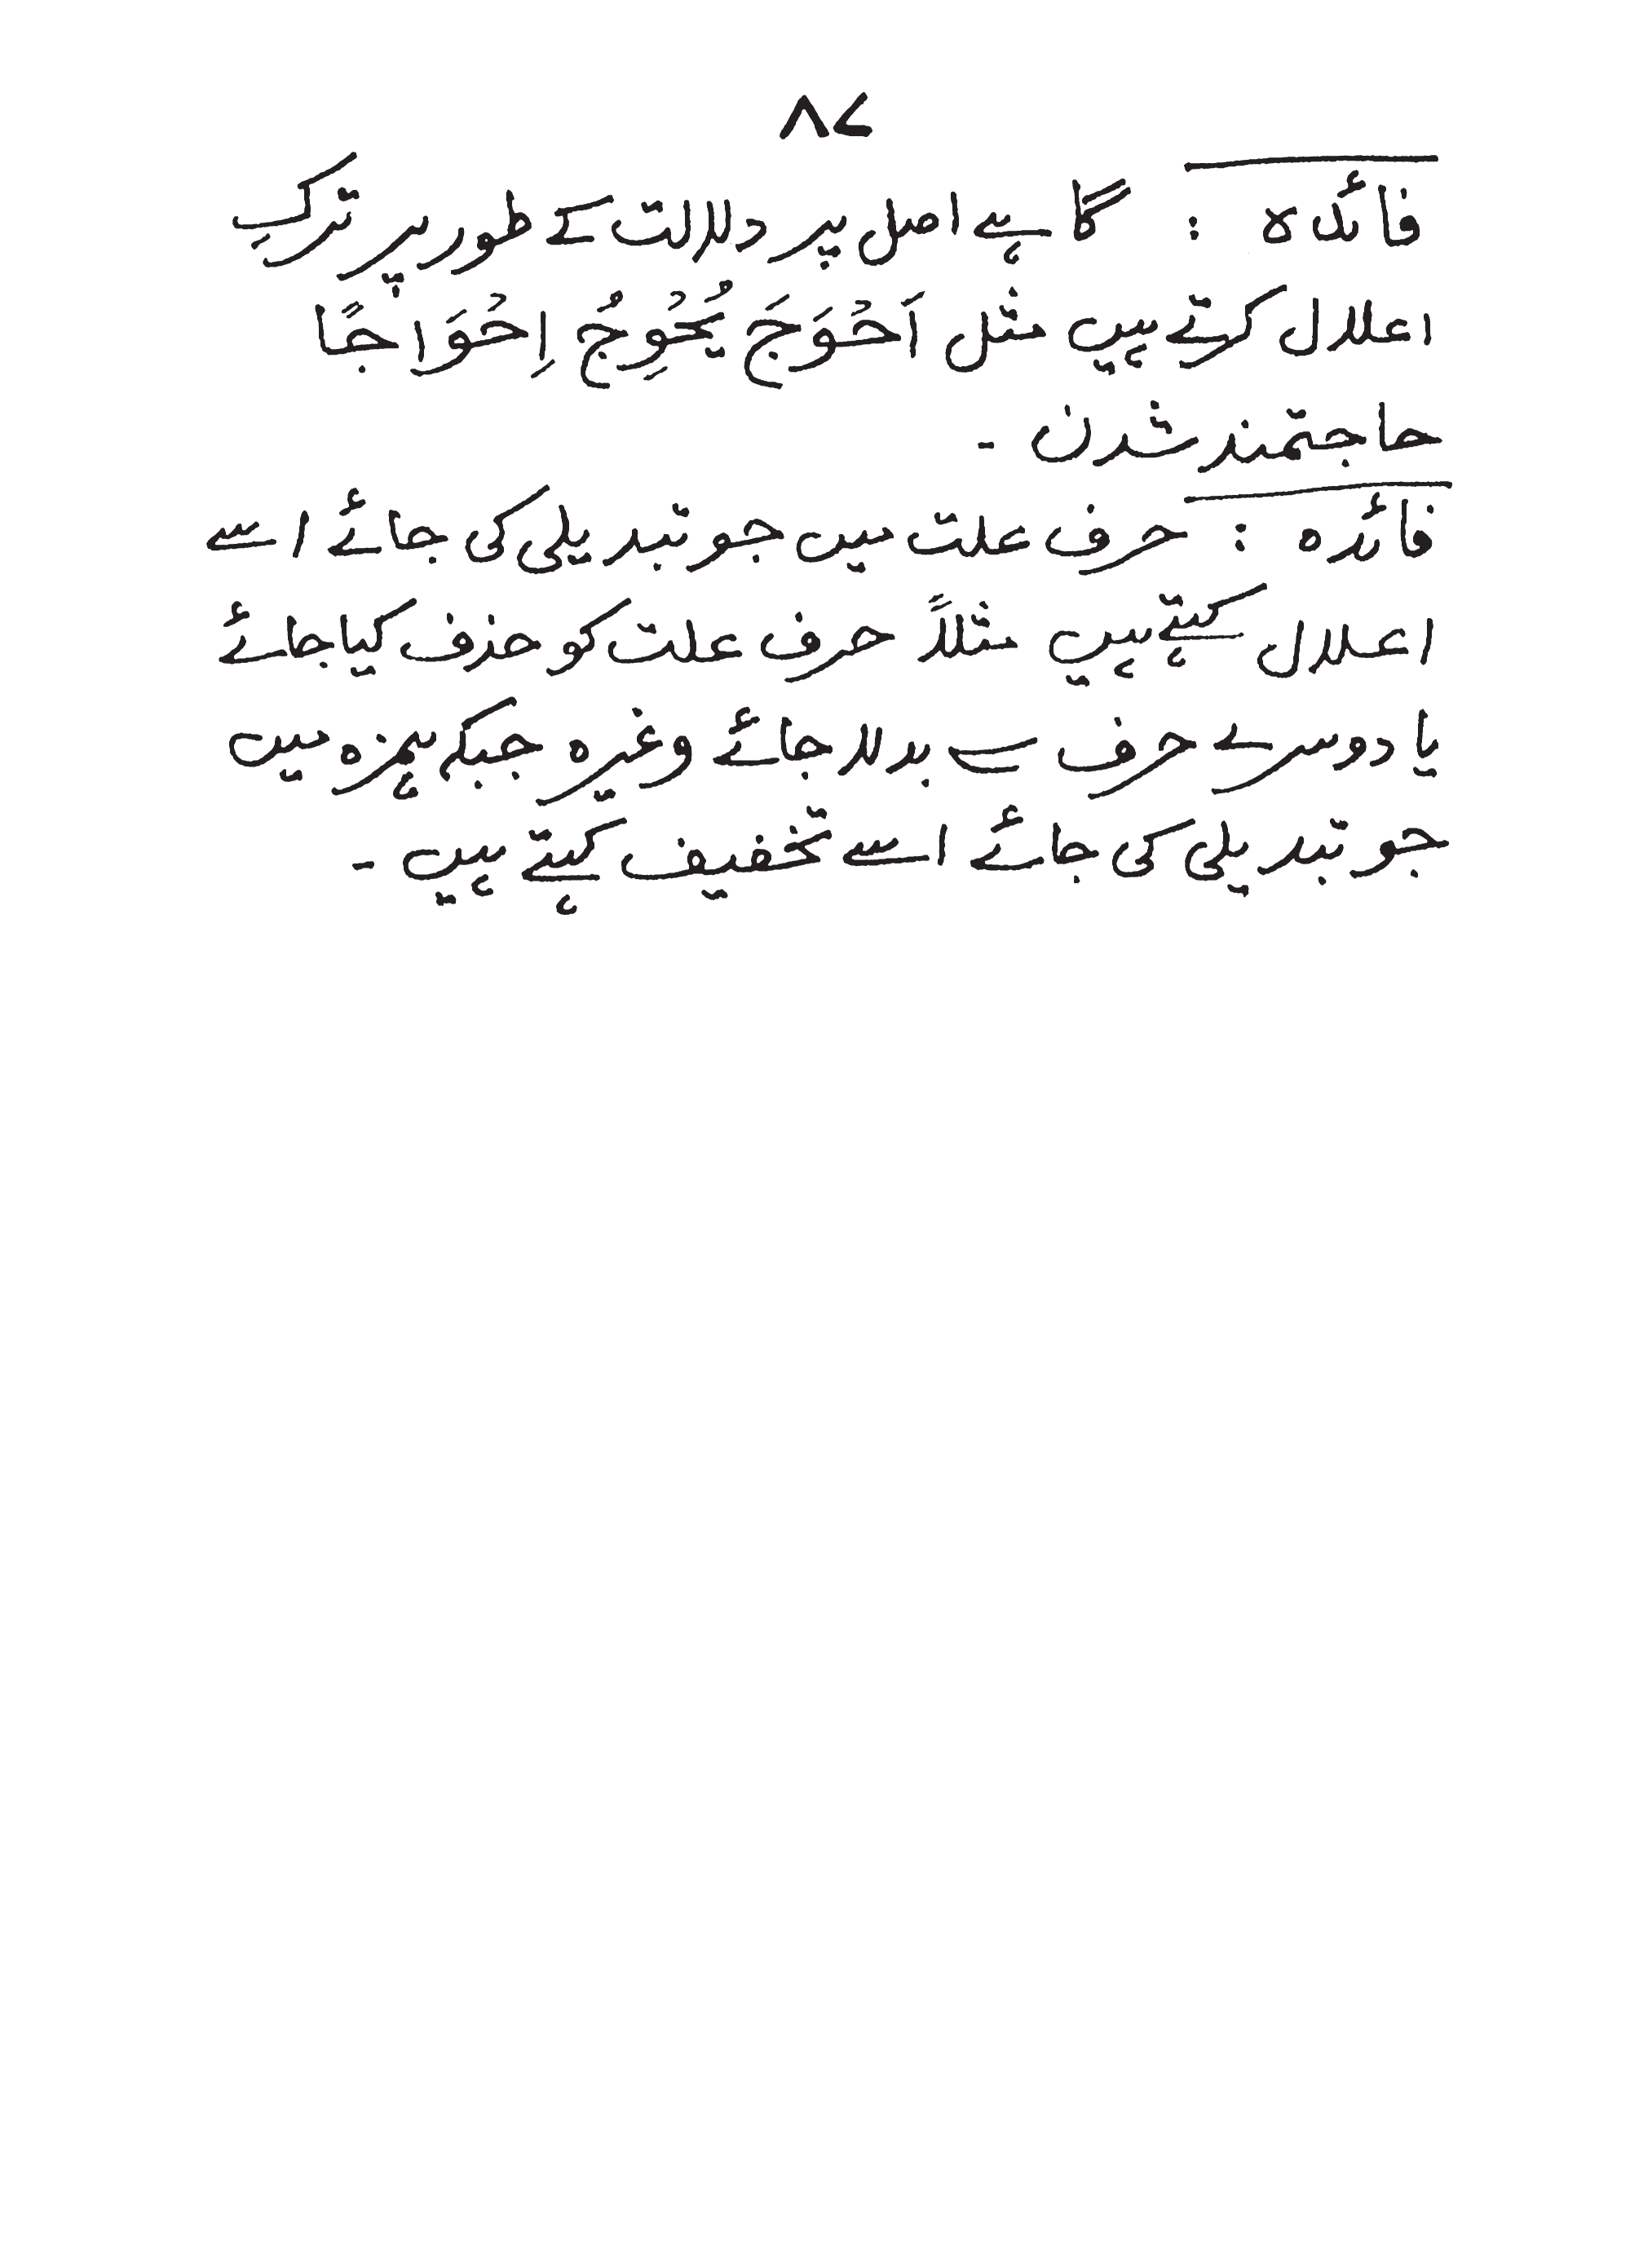 ۸۷
فائدہ : گاہے اصل پر دلالت کے طور پر ترکِ
اعلال کرتے ہیں مثل اَحْوَجَ یُحْوِجُ اِحْوَاجًا
حاجتمند شدن ۔
فائدہ : حرف علت میں جو تبدیلی کی جائے اسے
اعلال کہتے ہیں مثلاً حرف علت کو حذف کیا جائے
یا دوسرے حرف سے بدلا جائے وغیرہ جبکہ ہمزہ میں
جو تبدیلی کی جائے اسے تخفیف کہتے ہیں ۔